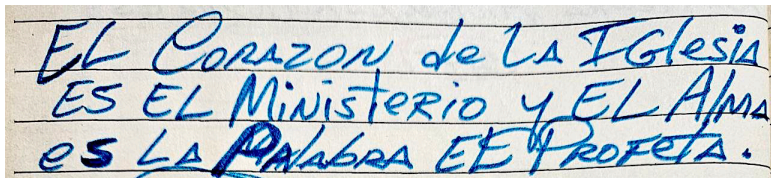 EL CORAZON de LA IGlesia
ES EL MiNisteRio y EL AlMA
es LA PALAbRA EL PROFETA.